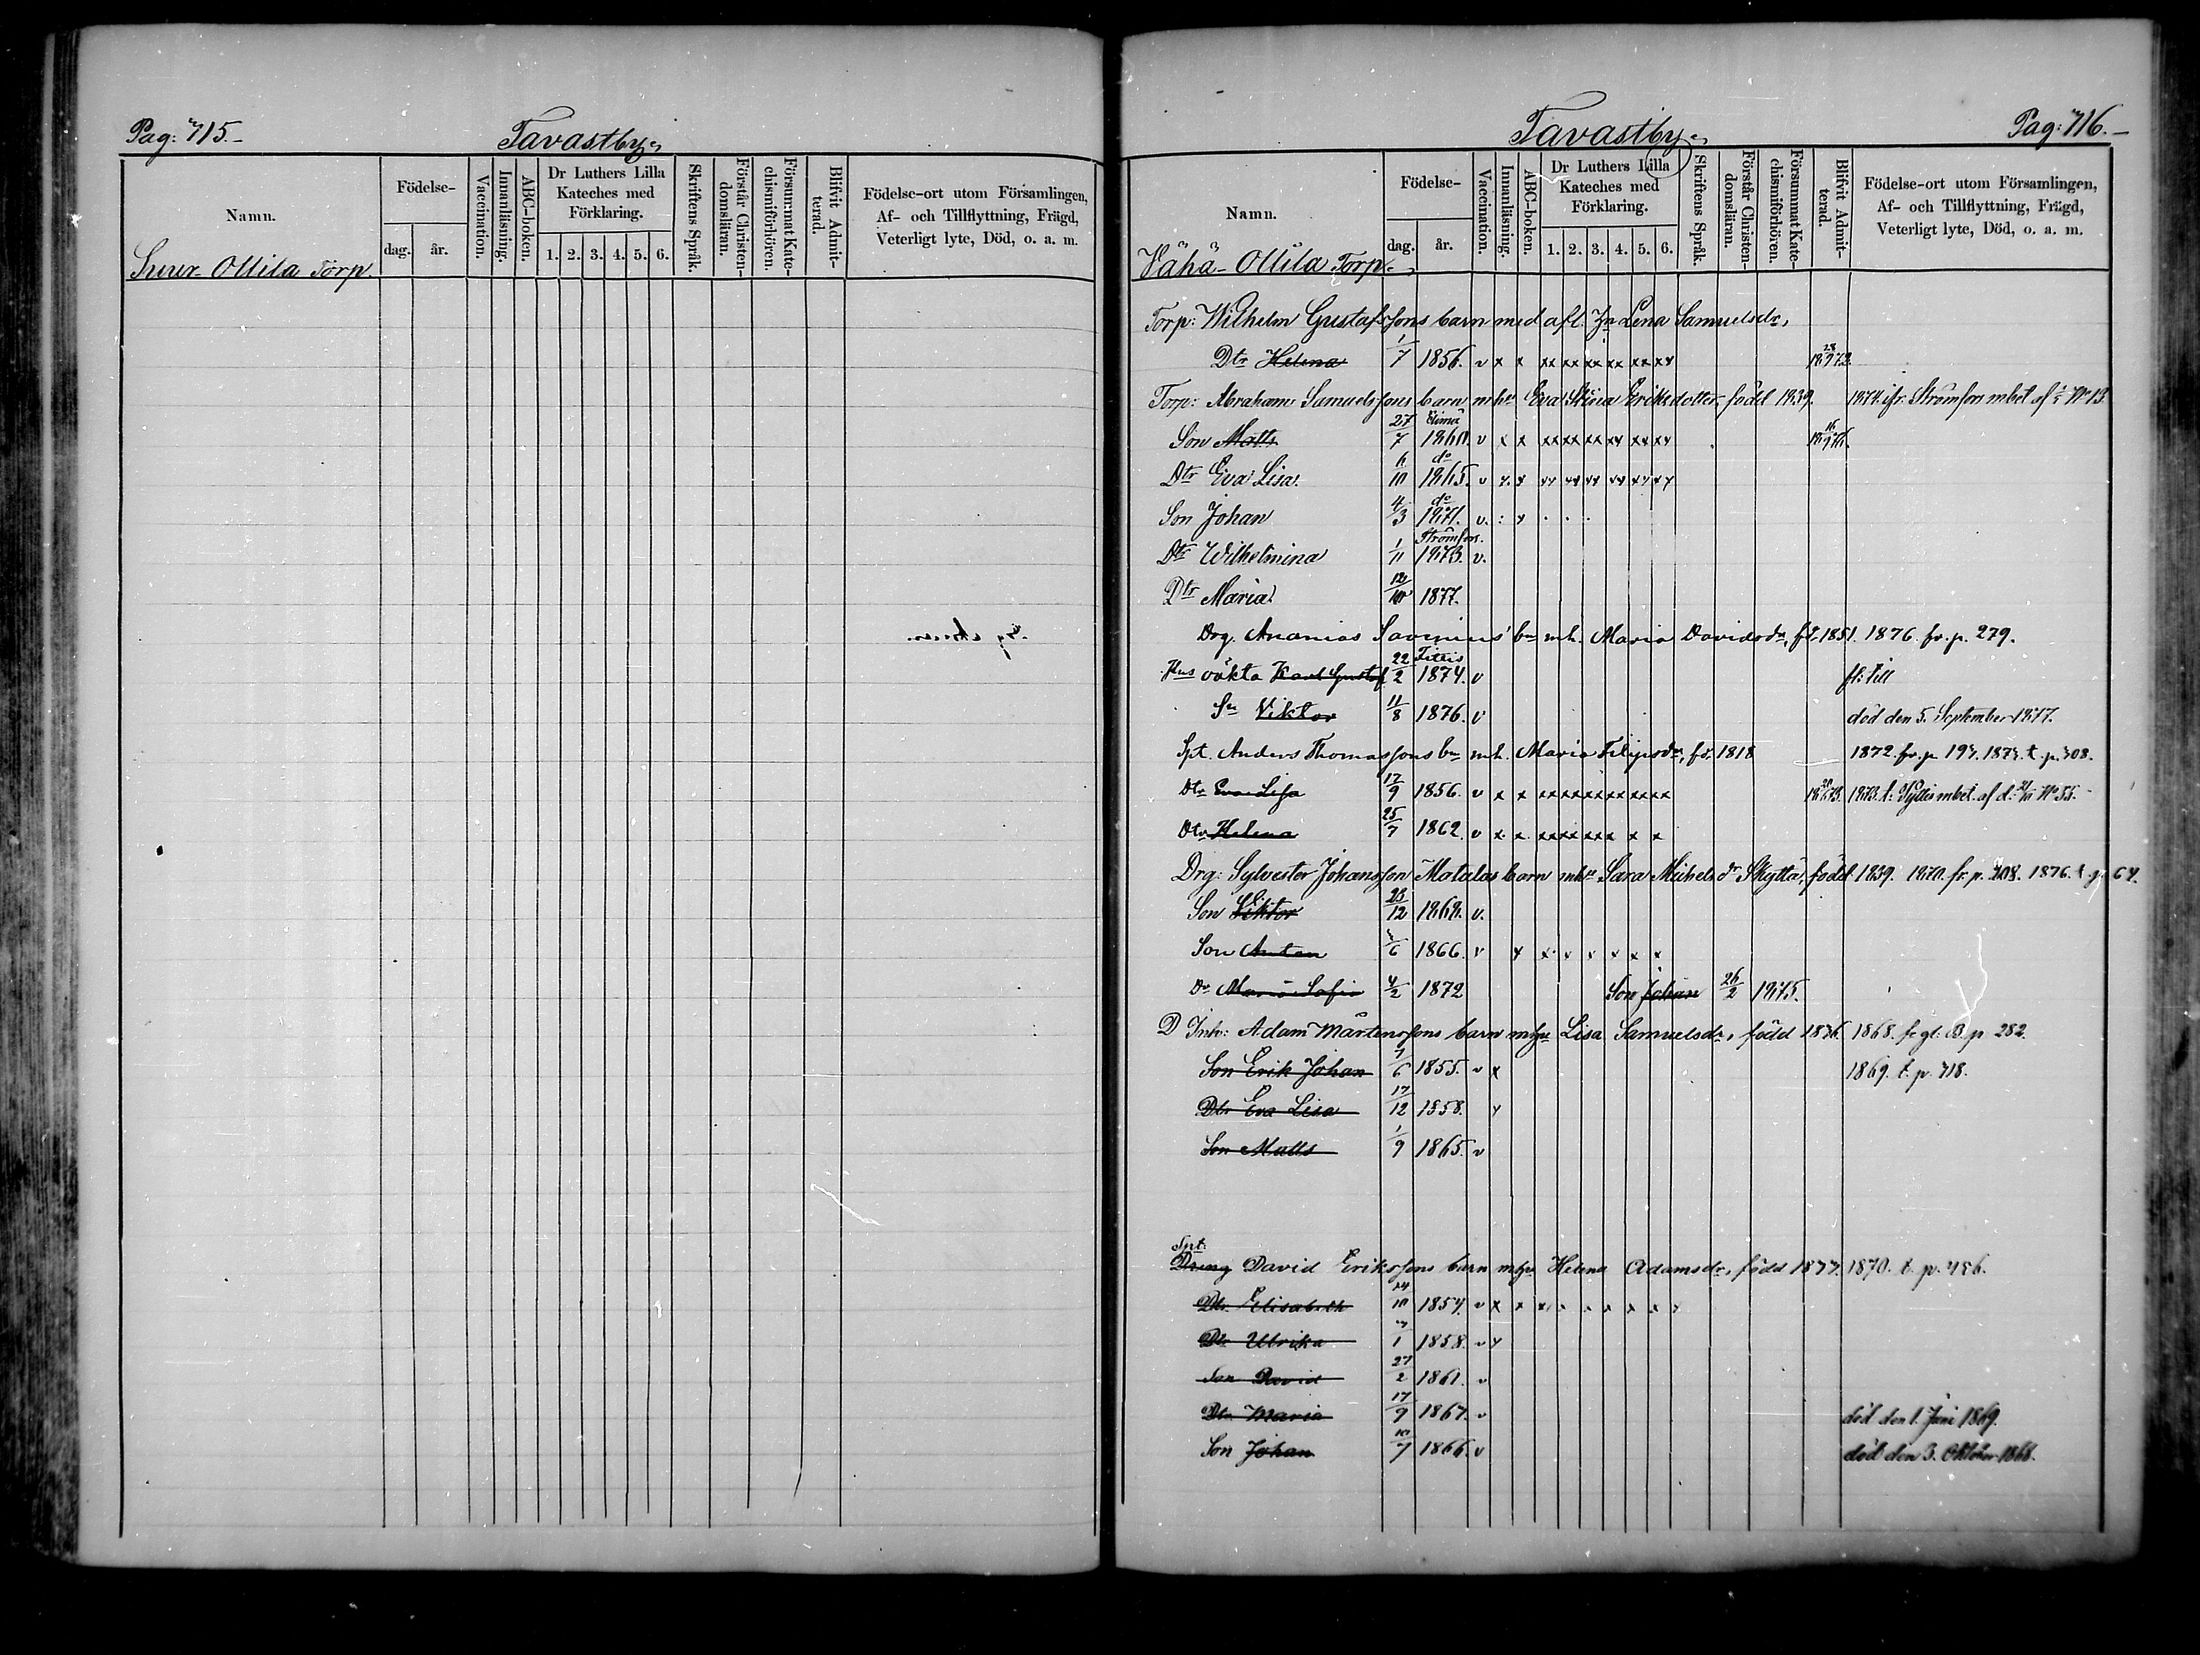 Pag: 715.-
Tavastby.
Namn.
Födelse-
dag.
år.
Vaccination.
Innanläsning.
ABC-boken.
Dr Luthers Lilla
Kateches med
Förklaring.
1. 2. 3. 4. 5. 6.
Skriftens Språk.
Förstår Christen-
domsläran.
Försummat Kate-
chismiförhören.
Blifvit Admit-
terad.
Födelse-ort utom Församlingen,
Af- och Tillflyttning, Frägd,
Veterligt lyte, Död, o. a. m.
Suur-Ollila Torp.
Pag: 716.-
Tavastby.
Namn.
Födelse-
dag.
år.
Vaccination.
Innanläsning.
ABC-boken.
Dr Luthers Lilla
Kateches med
Förklaring.
1. 2. 3. 4. 5. 6.
Skriftens Språk.
Förstår Christen-
domsläran.
Försummat Kate-
chismiförhören.
Blifvit Admit-
terad.
Födelse-ort utom Församlingen,
Af- och Tillflyttning, Frägd,
Veterligt lyte, Död, o. a. m.
Vähä-Ollila Torp.
Torp: Wilhelm Gustafssons barn med afl. Lena Samuelsdr,
Dtr Helena 1/7 1856. v x x xx xx xx xx xx xx
Torp: Abraham Samuelssons barn mhu Eva Stina Eriksdotter, född 1839. 1874. ifr. Strömfors mbet af
Elimä
Son Matts 27/7 1860. v x x xx xx xx xx xx xx
do
Dtr Eva Lisa 6/10 1865. v x x xx xx xx xx xx xx
do
Son Johan 4/3 1871. v. : x . . .
Strömfors.
Dtr Wilhelmina 1/11 1873. v.
Dtr Maria 1877.
Drg. Ananias Savenius' bn mh. Maria Davidsdr, fd. 1851. 1876. fr. p. 279.
Hus Karl Gustaf 22/2 1874. v fl: till
Sn Viktor 11/8 1876. v död den 5. September 1877.
Spt. Anders Thomassons bn mh. Maria Filipsdr, fd. 1818 1872. fr. p.
Dtr Eva Lisa 17/9 1856. v x x xx xx xx xx xx xx
Dtr Helena 25/7 1862. v x x xx xx xx x x
Drg: Sylvester Johansson Matalas barn mhu Sara Michelsdr Skyttä, född 1839. 1870. fr. p. 708. 1876. t. p. 64.
Son Viktor 23/12 1868. v.
Son Anton 1866. v x x x x x x x
Dr Maria Sofia 4/2 1872 Son Johan 26/2 1875.
D Inh: Adam Mårtenssons barn mhu Lisa Samuelsdr, född 1868. fr gl: B. p 282.
Son Erik Johan 7/6 1855. v x 1869. t. p. 718.
Dtr Eva Lisa 17/12 1858. x
Son Matts 1/9 1865. v
Spt:
Dreng David Erikssons barn mhu Helena Adamsdr, född 1870. t. p.
Dtr Elisabeth 1854. v x x x x x x x x x
Dtr Ulrika 1858. v x
Son David 27/2 1861. v
Dtr Maria 17/9 1867. v död den 1. Juni 1869.
Son Johan 10/7 1866. v död den 3. Oktober 1868.